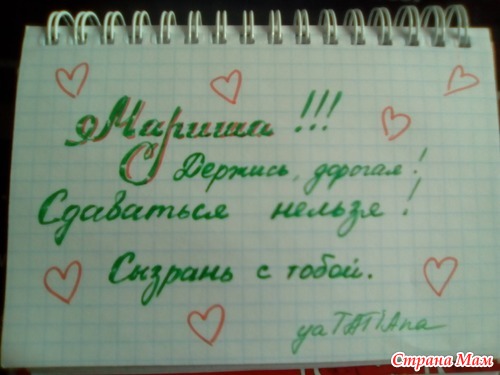 Мариша !!!
Держись, дорогая!
Сдаваться нельзя!
Сызрань с тобой.
yaTATiAna
Страна Мам